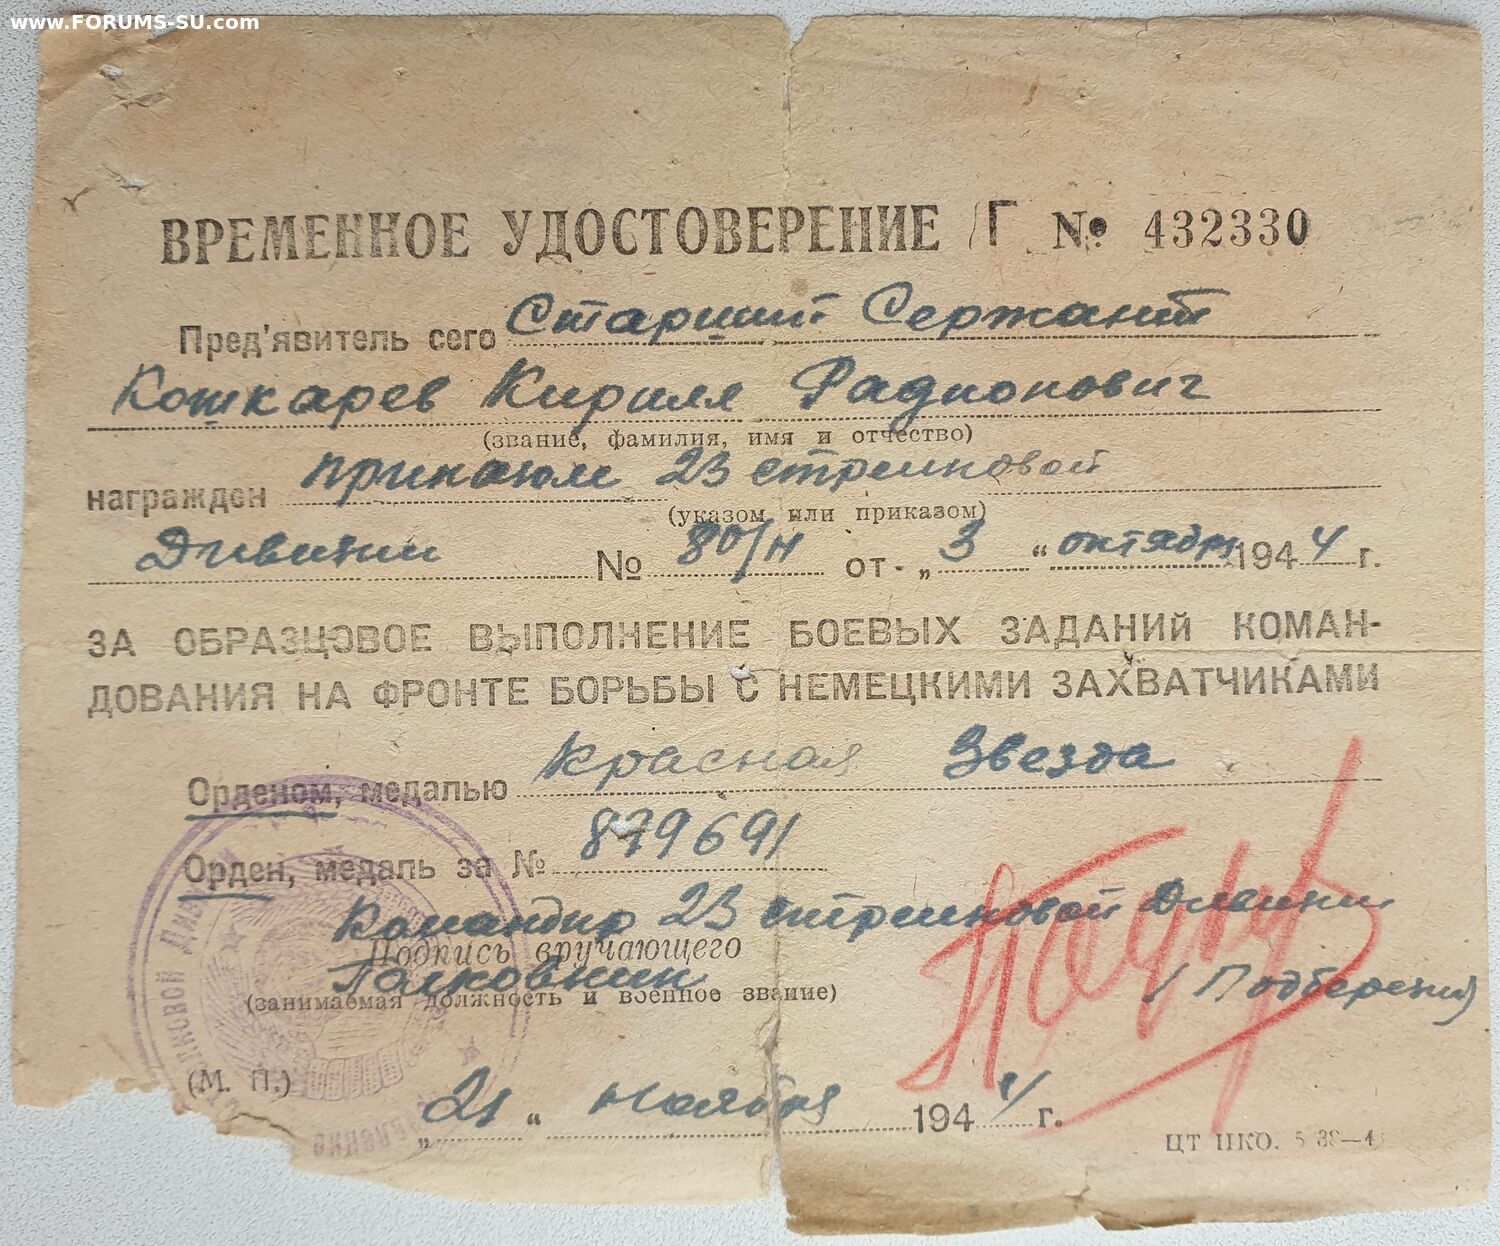 www.FORUMS-SU.com
ВРЕМЕННОЕ УДОСТОВЕРЕНИЕ Г № 432330
Пред'явитель сего Старший Сержант
Кошкарев Кирилл Радионович
(звание, фамилия, имя и отчество)
награжден приказом 23 стрелковой
(указом или приказом)
Дивизии № 80/н от „ 3 “ октября 1944 г.
ЗА ОБРАЗЦОВОЕ ВЫПОЛНЕНИЕ БОЕВЫХ ЗАДАНИЙ КОМАН-
ДОВАНИЯ НА ФРОНТЕ БОРЬБЫ С НЕМЕЦКИМИ ЗАХВАТЧИКАМИ
Орденом, медалью Красная Звезда
Орден, медаль за № 879691
Командир 23 стрелковой Дивизии
Подпись вручающего
Полковник / Подберезин)
(занимаемая должность и военное звание)
(М. П.)
„ 21 “ Ноября 1944 г.
ЦТ НКО.